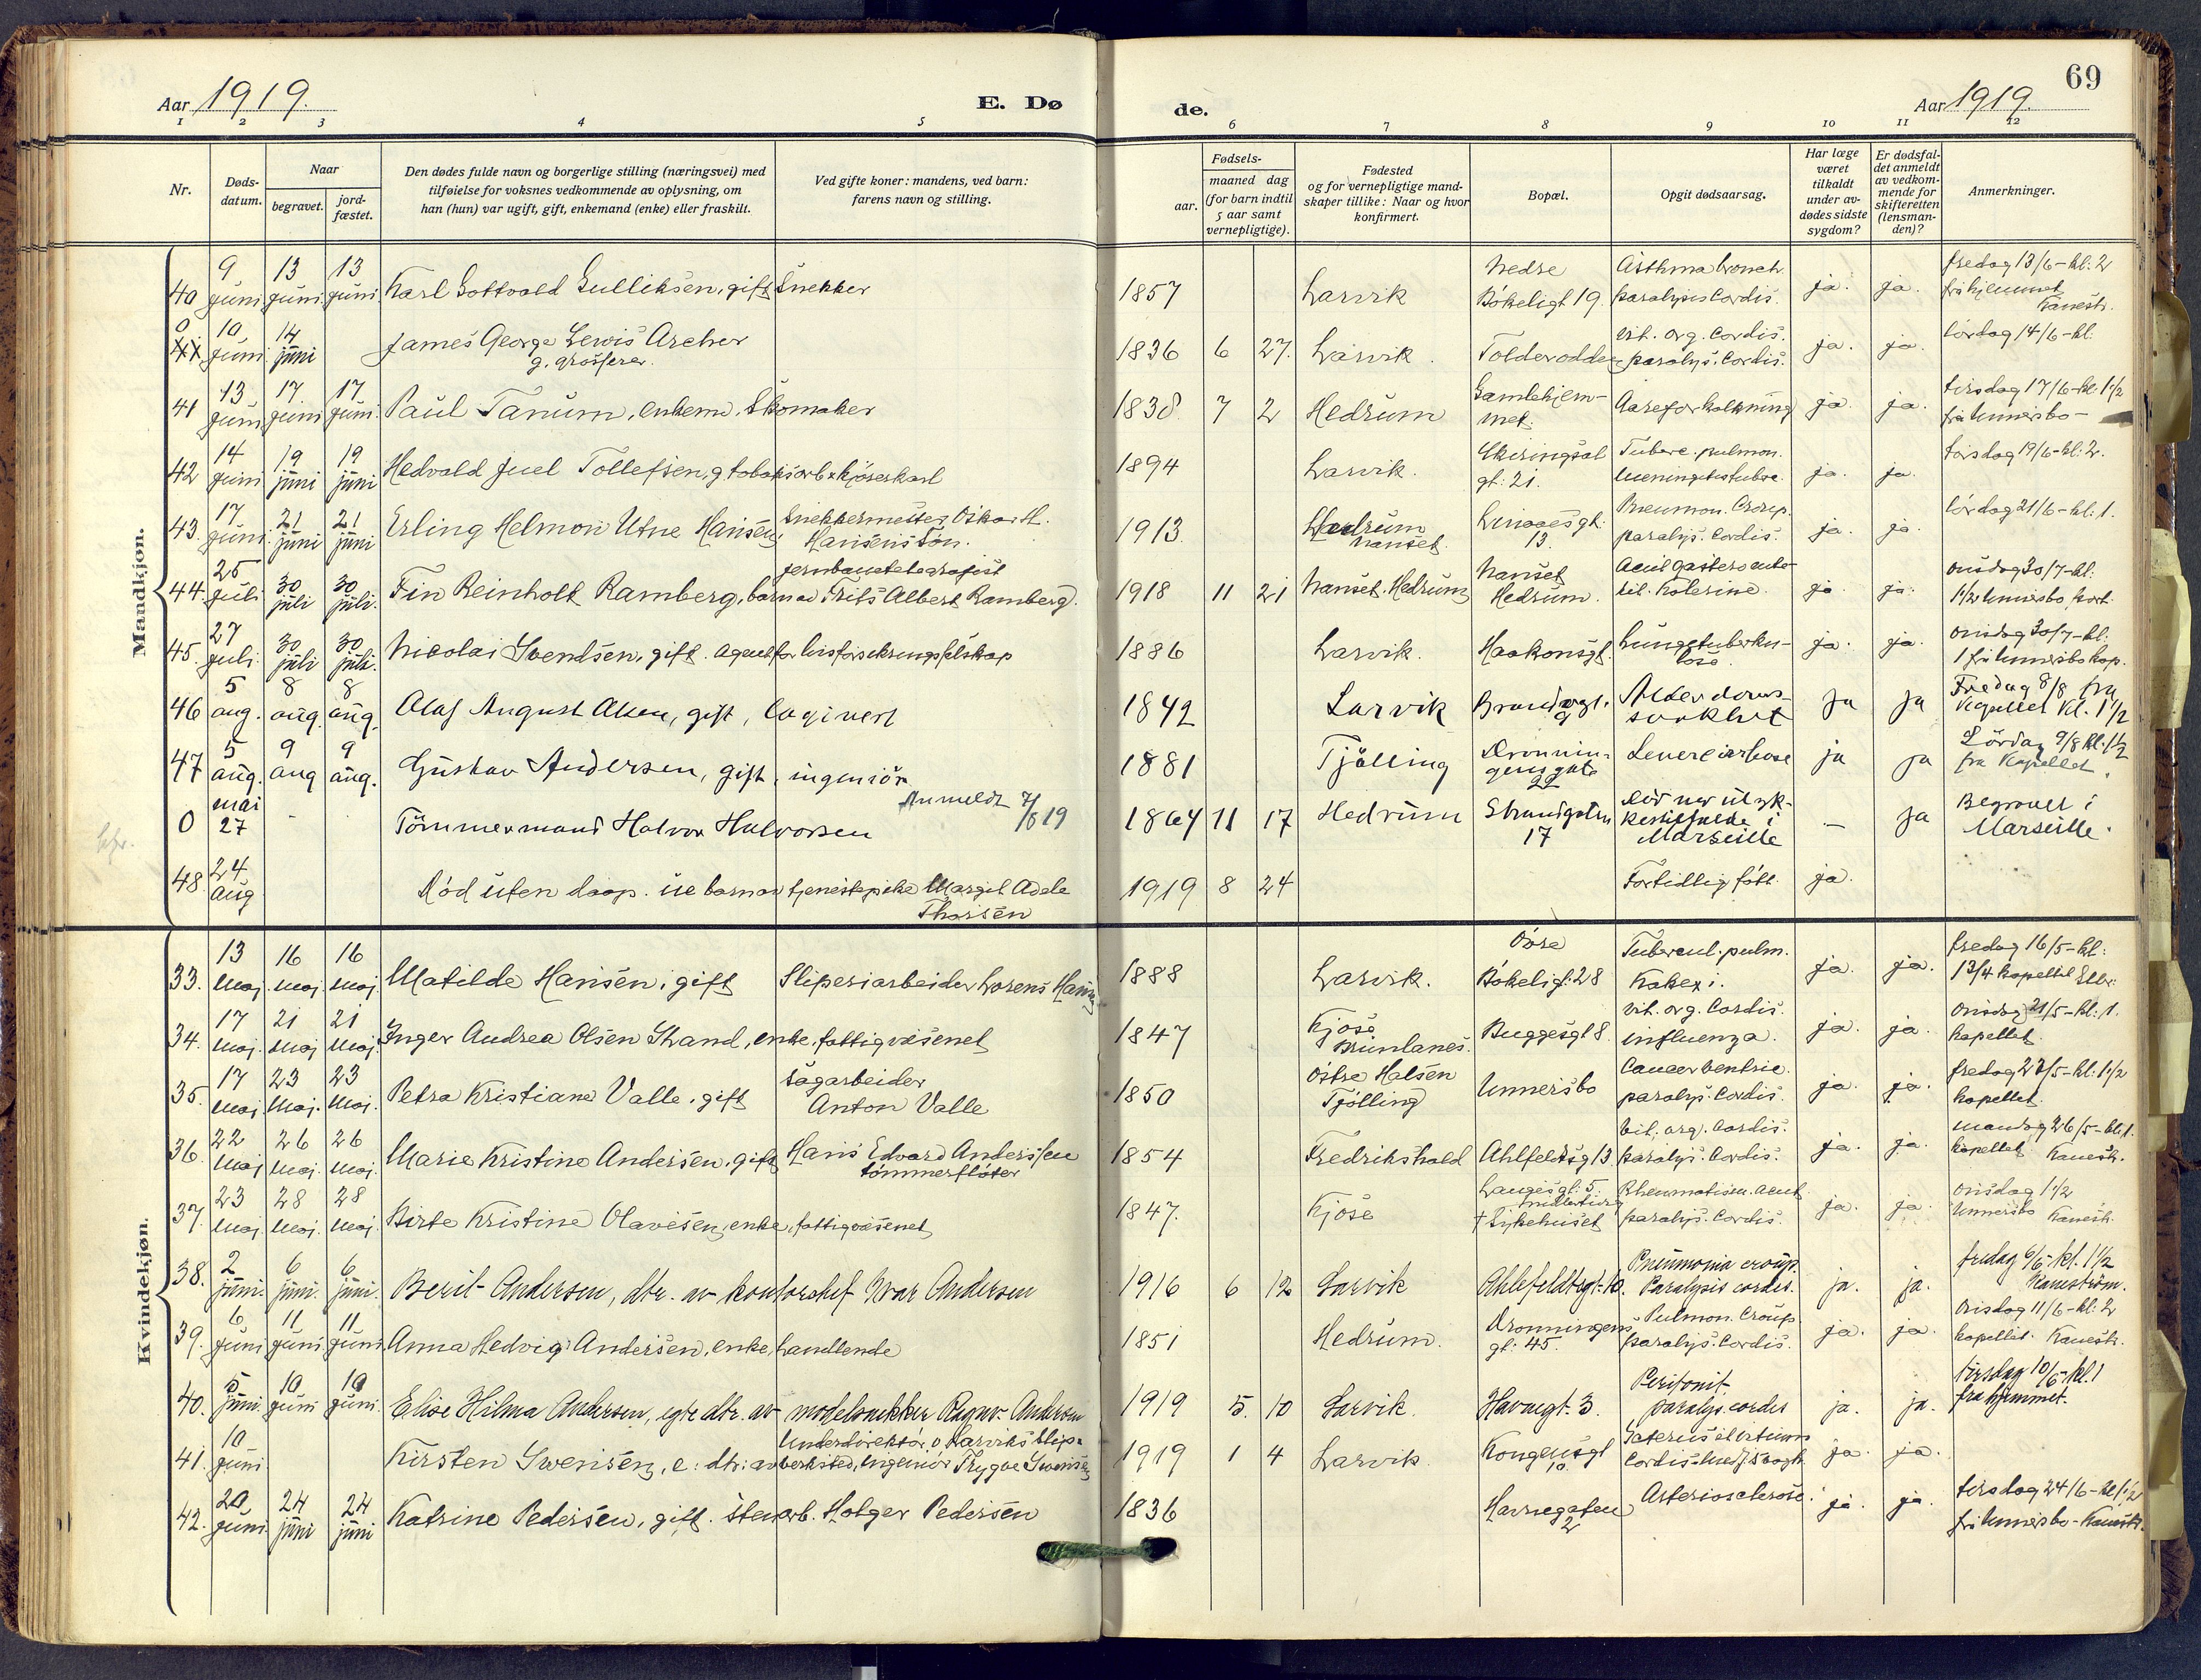 Aar 1919.
E. Dø
de.
Aar 1919.
69
1 2 3 4 5 6 7 8 9 10 11 12
Nr.
Døds-
datum.
Naar
begravet.
jord-
fæstet.
Den dødes fulde navn og borgerlige stilling (næringsvei) med
tilføielse for voksnes vedkommende av oplysning, om
han (hun) var ugift, gift, enkemand (enke) eller fraskilt.
Ved gifte koner: mandens, ved barn:
farens navn og stilling.
Fødsels-
aar.
maaned dag
(for barn indtil
5 aar samt
vernepligtige).
Fødested
og for vernepligtige mand-
skaper tillike: Naar og hvor
konfirmert.
Bopæl.
Opgit dødsaarsag.
Har læge
været
tilkaldt
under av-
dødes sidste
sygdom?
Er dødsfal-
det anmeldt
av vedkom-
mende for
skifteretten
(lensman-
den)?
Anmerkninger.
Mandkjøn.
40 9 juni 13 juni 13 juni Karl Gottvald Gulliksen, gift Snekker 1857 Larvik Nedre Bökeligt 19. Asthma bronch. paralysis Cordis. ja. ja. fredag 13/6 - kl: 2 fra hjemmet Kanestr.
0 10 juni 14 juni James George Lewis Archer g. grosserer. 1836 6 27. Larvik. Tolderodden vit. org. Cordis. paralys. Cordis. ja. ja. lördag 14/6 - kl.
41 13 juni 17 juni 17 juni. Paul Tanum, enkem. Skomaker 1838 7 2 Hedrum Gamlehjem- met. Aareforkalkning ja. ja. tirsdag 17/6 - kl: 1 1/2 fra Unnersbo -
42 14 juni 19 juni 19 juni Hedvald Juel Tollefsen, g tobaksarb x kjöreskarl 1894 Larvik. Skiringsal gt: 21. Tuberc. pulmon. meningitis tuberc. ja. ja. torsdag 19/6 - kl: 2.
43. 17 juni. 21 juni 21 juni Erling Helmon Utne Hansen, Snekkermester Oskar H. Hansens Sön. 1913. Hedrum Nanset. Linaaesgt: 13. Pneumon. Croup. paralys. Cordis. ja. ja. lördag 21/6 - kl: 1.
44. 25 juli 30 juli 30 juli. Fin Reinholt Ramberg, barn av jernbanetelegrafist Frits Albert Ramberg. 1918 11 21 Nanset. Hedrum Nanset Hedrum. Acut gastero ente- rit. Kolerine. ja ja. onsdag 30/7 - kl: 1 1/2 Unnersbo
45. 27 juli. 30 juli 30 juli. Nicolai Svendsen, gift. Agent for livsforsikringsselskap 1886 Larvik. Haakonsgt. Lungetuberku- lose. ja. ja. onsdag 30/7 - kl: 1 fra Unnersbo kap.
46 5 aug. 8 aug. 8 aug. Olaf August Olsen, gift, logivert 1842 Larvik Brandvgt. 9 Alderdoms- svakhet ja ja Fredag 8/8 fra Kapellet Kl. 1 1/2
47 5 aug. 9 aug 9 aug. Gustav Andersen, gift, ingeniör 1881 Tjölling Dronnin- gensgate 22 Levercirrhose ja ja Lördag 9/8 kl. 1 1/2 fra Kapellet.
0 mai 27 - Tömmermand Halvor Halvorsen Anmeldt 7/8 19 1864 11 17 Hedrum Strandgaten 17 Död ved ulyk- kestilfælde i Marseille - ja Begravet i Marseille.
48. 24 aug Död uten daap. ue barn av tjenestepike Margit Adele Thorsen 1919 8 24 Fortidlig fött ja.
Kvindekjøn.
33. 13 maj. 16 maj. 16 maj Matilde Hansen, gift Sliperiarbeider Lorens Hansen 1888 Larvik. Övre Bökeligt: 28 Tubercul. pulm. Kakexi. ja. ja. fredag 16/5 - kl: 1 3/4 kapellet
34. 17 maj. 21 maj 21 maj. Inger Andrea Olsen Strand, enke, fattigvæsenet 1847 Kjose Brunlanes. Buggesgt 8. vit. org. Cordis. influenza. ja. ja. onsdag 21/5 - kl: 1. kapellet.
35. 17 maj 23 maj. 23 maj. Petra Kristiane Valle, gift sagarbeider Anton Valle 1850 Östre Halsen Tjölling Unnersbo Cancer ventric. paralys. Cordis. ja. ja. fredag 23/5 - kl: 1 1/2 kapellet.
36. 22 maj 26 maj. 26 maj. Marie Kristine Andersen, gift Hans Edvard Anderssen tömmerflöter 1854 Fredrikshald Ahlfeldtsg 13 Vit. org. Cordis. paralys. Cordis. ja. ja. mandag 26/5 - kl: 1. kapellet Kanestr.
37. 23 maj. 28 maj. 28 maj. Birte Kristine Olavesen, enke, fattigvæsenet 1847. Kjose Laugesgt: 5. midlertidig † Sykehuset Rheumatism. acut. paralys. Cordis. ja. ja. onsdag 1 1/2 Unnersbo Kanestr.
38. 2 juni. 6 juni. 6 juni. Berit Andersen, dtr. av kontorchef Ivar Andersen 1916 6 12 Larvik Ahlefeldtsgt: 10. Pneumonia croup. Paralysis cordis. ja. ja. fredag 6/6 - kl. 1 1/2 Kaneström.
39. 6 juni 11 juni. 11 juni. Anna Hedvig Andersen, enke, handlende 1851 Hedrum. Dronningens gt: 45. Pulmon. Croup paralys. Cordis. ja. ja. onsdag 11/6 - kl: 2 kapellet. Kanestr.
40. 5 juni. 10 juni 10 juni. Elise Hilma Andersen, egte dtr. av modelsnekker Ragnv. Andersen 1919 5. 10 Larvik. Havnegt. 3. Peritonit. paralys. cordis ja. ja. tirsdag 10/6 - kl. 1 fra hjemmet.
41. 10 juni Kirsten Svensen, e: dtr: av Underdirektör v Larviks Slip- verksted, Ingeniör Trygve Svensen 1919 1 4 Larvik Kongensgt 10. Icterus ja ja.
42. 20 juni 24 juni 24 juni Katrine Pedersen, gift. stenarb. Holger Pedersen 1836 Havnegaten 2 Arteriosclerose. ja. ja. tirsdag 24/6 - kl 1 1/2 fra Unnersbo - Kanestr.